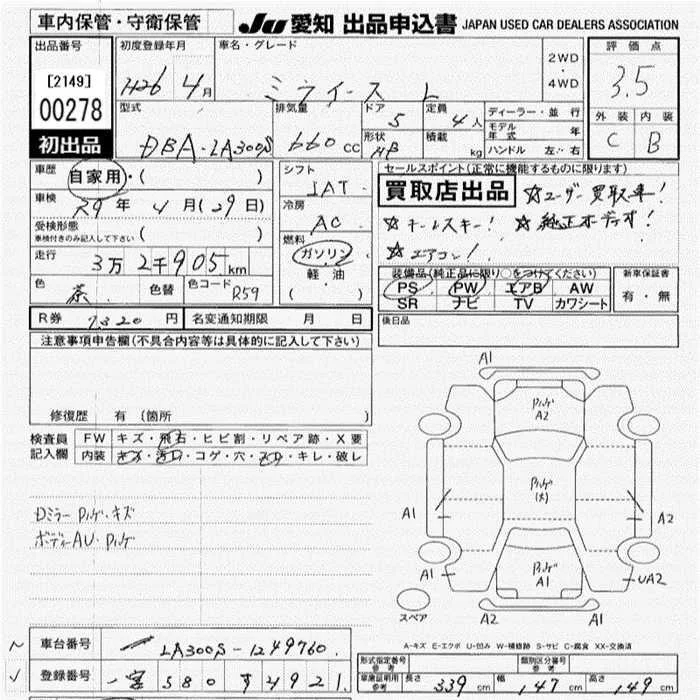 車内保管・守衛保管
JU 愛知 出品申込書 JAPAN USED CAR DEALERS ASSOCIATION
出品番号 初度登録年月 車名・グレード 2WD・4WD 評価点
[2149] H26年 4月 ミライース L 3.5
00278
初出品
型式 排気量 ドア 定員 ディーラー・並行 外装 内装
DBA-LA300S 660cc 5 4人 モデル年式 年 C B
形状 HB 積載 kg ハンドル 左・右
車歴 自家用・( ) シフト IAT セールスポイント(正常に機能するものに限ります)
車検 29年 4月(29日) 冷房 AC 買取店出品 ☆ユーザー買取車!
受検形態 車検付きのみ記入して下さい ( ) ☆キーレスキー! ☆純正オーディオ!
走行 3万2千905km 燃料 ガソリン・軽油 ( ) ☆エアコン!
色 茶 色替 色コード R59
装備品(純正品に限り○をつけてください) 新車保証書
PS PW エアB AW 有・無
SR ナビ TV カワシート
R券 7320円 名変通知期限 月 日 後日品
注意事項申告欄(不具合内容等は具体的に記入して下さい)
修復歴 有(箇所 )
検査員記入欄 FW キズ・飛石・ヒビ割・リペア跡・X要
内装 キズ・汚れ・コゲ・穴・スレ・キレ・破レ
Dミラー P.ハゲ・キズ
ボディーAU・P.ハゲ
A1
P.ハゲ A2
P.ハゲ(大)
A1 A2
P.ハゲ A1
A1 UA2
スペア A2 A1
A-キズ E-エクボ U-凹み W-補修跡 S-サビ C-腐食 XX-交換済
車台番号 LA300S-1249760
登録番号 一宮 580 す 4921
形式指定番号 参考 類別区分番号 参考
車庫証明用 参考 長さ 339cm 幅 147cm 高さ 149cm